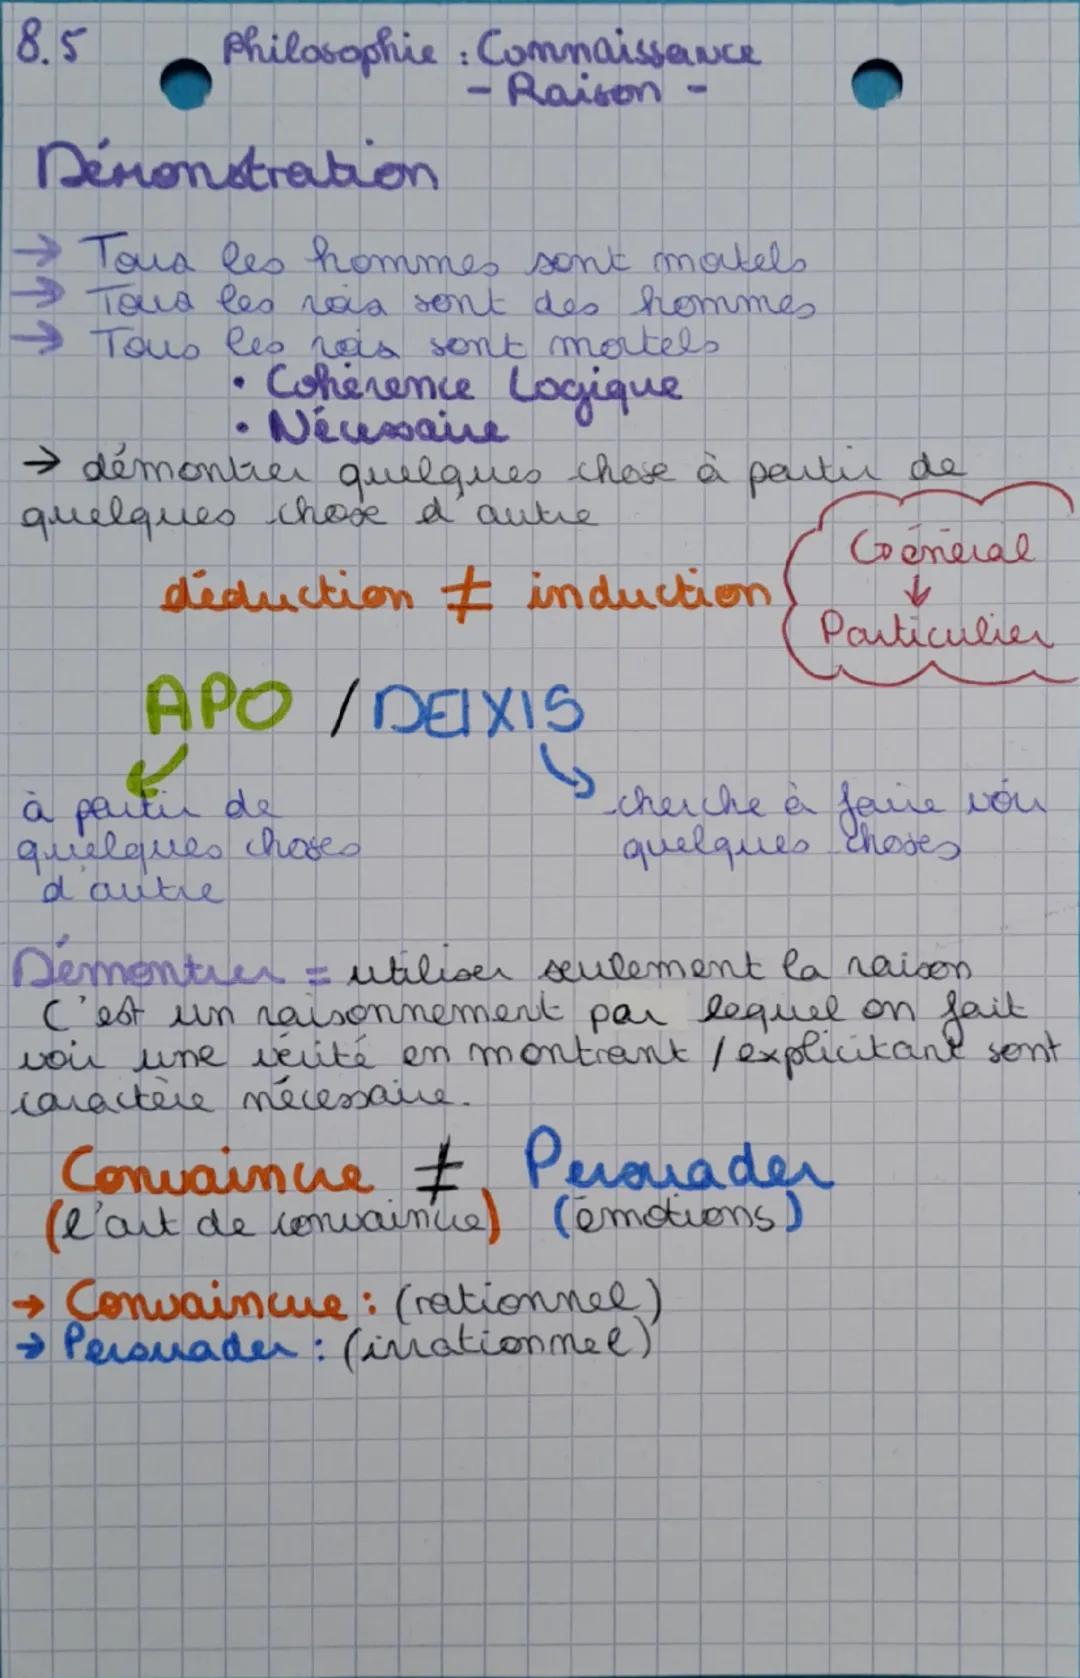 8.5 Philosophie : Connaissance
- Raison -
Démonstration
→ Tous les hommes sont mortels
→ Tous les rois sont des hommes
→ Tous les rois sont mortels
• Cohérence Logique
• Nécessaire
→ démontrer quelques chose à partir de
quelques chose d'autre
déduction ≠ induction
Général
↓
Particulier
APO / DEIXIS
à partir de
quelques choses
d'autre
cherche à faire voir
quelques choses
Démontrer = utiliser seulement la raison
C'est un raisonnement par lequel on fait
voir une vérité en montrant / explicitant sont
caractère nécessaire.
Convaincre ≠ Persuader
(l'art de convaincre) (émotions)
→ Convaincre : (rationnel)
→ Persuader : (irrationnel)